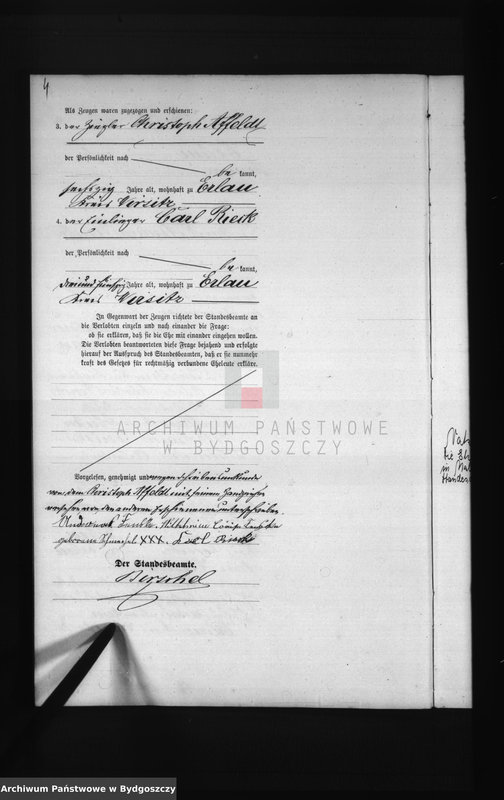 4
Als Zeugen waren zugezogen und erschienen:
3. der Ziegler Christoph Affeldt
der Persönlichkeit nach
be kannt,
sechszig Jahre alt, wohnhaft zu Erlau
Kreis Wirsitz
4. der Einlieger Carl Rieck
der Persönlichkeit nach
be kannt,
drei und fünfzig Jahre alt, wohnhaft zu Erlau
Kreis Wirsitz
In Gegenwart der Zeugen richtete der Standesbeamte an
die Verlobten einzeln und nach einander die Frage:
ob sie erklären, daß sie die Ehe mit einander eingehen wollen.
Die Verlobten beantworteten diese Frage bejahend und erfolgte
hierauf der Ausspruch des Standesbeamten, daß er sie nunmehr
kraft des Gesetzes für rechtmäßig verbundene Eheleute erkläre.
ARCHIWUM PAŃSTWOWE
W BYDGOSZCZY
Vorgelesen, genehmigt und wegen Schreibensunkunde
von dem Christoph Affeldt mit seinem Handzeichen
versehen von den anderen Erschienenen unterschrieben.
Wilhelmine Louise
geborene XXX. Carl Rieck
Der Standesbeamte.
die
in
Archiwum Państwowe w Bydgoszczy